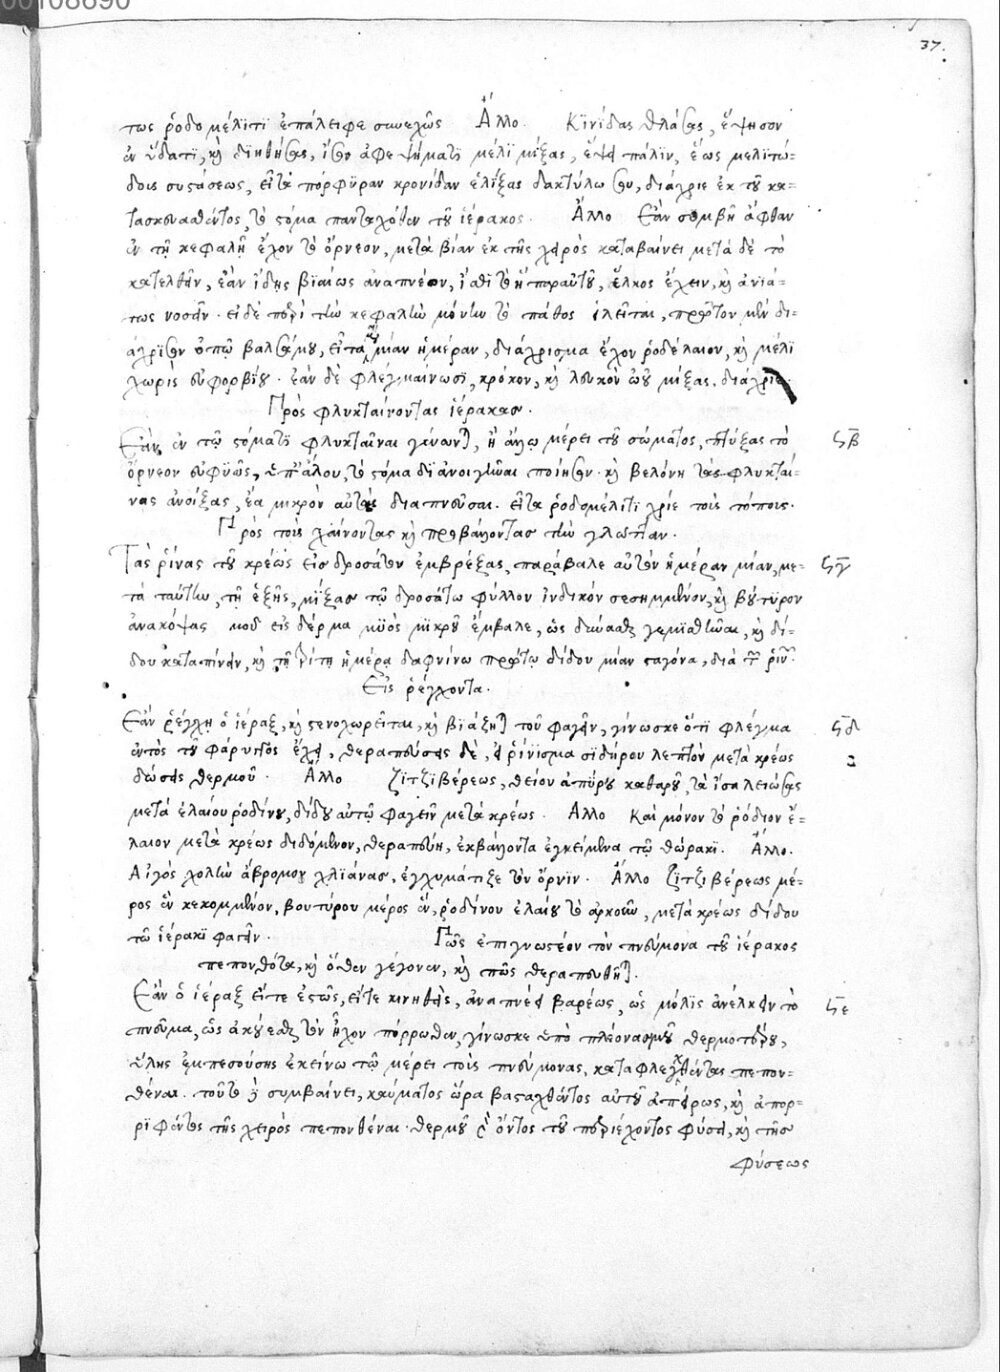 00108690
37.
τως ῥοδομέλιτι ἐπάλειφε συνεχῶς Ἄλλο. Κινίδας θλάσας, ἕψησον
ἐν ὕδατι, καὶ διηθήσας, ἴσον ἀφεψήματι μέλι μίξας, ἕψει πάλιν, ἕως μελιτώ-
δους συστάσεως, εἶτα πόρφυραν κροκίδαν ἑλίξας δακτύλω σου, διάχριε ἐκ τοῦ κα-
τασκευασθέντος, τὸ στόμα πανταχόθεν τοῦ ἱέρακος. Ἄλλο Ἐὰν συμβῆ ἄφθαν
ἐν τῇ κεφαλῇ ἔχον τὸ ὄρνεον, μετὰ βίαν ἐκ τῆς χειρὸς καταβαίνει μετὰ δὲ τὸ
κατελθεῖν, ἐὰν ἴδης βιαίως ἀναπνέον, ἴσθι τὸ παραυτοῦ, ἕλκος ἔχειν, καὶ ἀνιά-
τως νοσεῖν. εἰ δὲ περὶ τὴν κεφαλὴν μόνην τὸ πάθος εἱλεῖται, πρῶτον μὲν δι-
άχρισον ὀπῷ βαλσάμου, εἶτα μίαν ἡμέραν, διάχρισμα ἔχον ῥοδέλαιον, καὶ μέλι
χωρὶς εὐφορβίου. ἐὰν δὲ φλεγμαίνωσι, κρόκον, καὶ λευκὸν ὠοῦ μίξας, διάχριε.
Πρὸς φλυκταίνοντας ἱέρακας.
Ἐὰν ἐν τῷ στόματι φλυκταῖναι γένωνται, ἢ ἄλλω μέρει τοῦ σώματος, πτύξας τὸ ϛβ
ὄρνεον εὐφυῶς, ὑπ' ἄλλου, τὸ στόμα διανοιγῆναι ποίησον. καὶ βελόνη τὰς φλυκταί-
νας ἀνοίξας, ἔα μικρὸν αὐτὰς διαπνεῦσαι. εἶτα ῥοδομέλιτι χρίε τοὺς τόπους.
Πρὸς τοὺς χαίνοντας καὶ προβάλλοντας τὴν γλωττῖαν.
Τὰς ῥίνας τοῦ κρέως εἰς δροσάτον ἐμβρέξας, παράβαλε αὐτὸν ἡμέραν μίαν, με- ϛγ
τὰ ταύτην, τῇ ἑξῆς, μίξας τῷ δροσάτω φύλλον ἰνδικὸν σεσημμένον, καὶ βούτυρον
ἀνακόψας εἰς δέρμα μυὸς μικροῦ ἔμβαλε, ὡς δύνασθαι γεμισθῆναι, καὶ δί-
δου καταπίνειν, καὶ τῇ τρίτη ἡμέρα δαφνίνω πρώτω δίδου μίαν σταγόνα, διὰ τῶν ῥινῶν.
Εἰς ῥέγχοντα.
Ἐὰν ῥέγχη ὁ ἱέραξ, καὶ στενοχωρεῖται, καὶ βιάζηται τοῦ φαγεῖν, γίνωσκε ὅτι φλέγμα ϛδ
ἐντὸς τοῦ φάρυγγος ἔχει, θεραπεύσεις δὲ, εἰ ῥίνισμα σιδήρου λεπτὸν μετὰ κρέως
δώσεις θερμοῦ. Ἄλλο ζιτζιβέρεως, θείου ἀπύρου καθαροῦ, τὰ ἴσα λειώσας
μετὰ ἐλαίου ῥοδίνου, δίδου αὐτῷ φαγεῖν μετὰ κρέως. Ἄλλο Καὶ μόνον τὸ ῥόδιον ἔ-
λαιον μετὰ κρέως διδόμενον, θεραπεύει, ἐκβάλλοντα ἐγκείμενα τῷ θώρακι. Ἄλλο.
Αἰγὸς χολὴν ἀβρόμου χλιάνας, ἐγχυμάτιζε τὸν ὄρνιν. Ἄλλο Ζιτζιβέρεως μέ-
ρος ἓν κεκομμένον, βουτύρου μέρος ἓν, ῥοδίνου ἐλαίου τὸ ἀρκοῦν, μετὰ κρέως δίδου
τῷ ἱέρακι φαγεῖν. Πῶς ἐπιγνωστέον τὸν πνεύμονα τοῦ ἱέρακος
πεπονθότα, καὶ ὅθεν γέγονεν, καὶ πῶς θεραπευθῇται.
Ἐὰν ὁ ἱέραξ εἴτε ἑστὼς, εἴτε κινηθεὶς, ἀναπνέει βαρέως, ὡς μόλις ἀνέλκειν τὸ ϛε
πνεῦμα, ὡς ἀκούεσθαι τὸν ἦχον πόρρωθεν, γίνωσκε ὑπὸ πλεονασμοῦ θερμοτέρου,
ὕλης ἐμπεσούσης ἐκείνω τῷ μέρει τοὺς πνεύμονας, καταφλεχθέντας πεπον-
θέναι. τοῦτο γὰρ συμβαίνει, καύματος ὥρα βασταχθέντος αὐτοῦ ἀπείρως, καὶ ἀπορ-
ριφέντος τῆς χειρὸς πεπονθέναι. θερμοῦ γὰρ ὄντος τοῦ περιέχοντος φύσει, καὶ τῆς
φύσεως